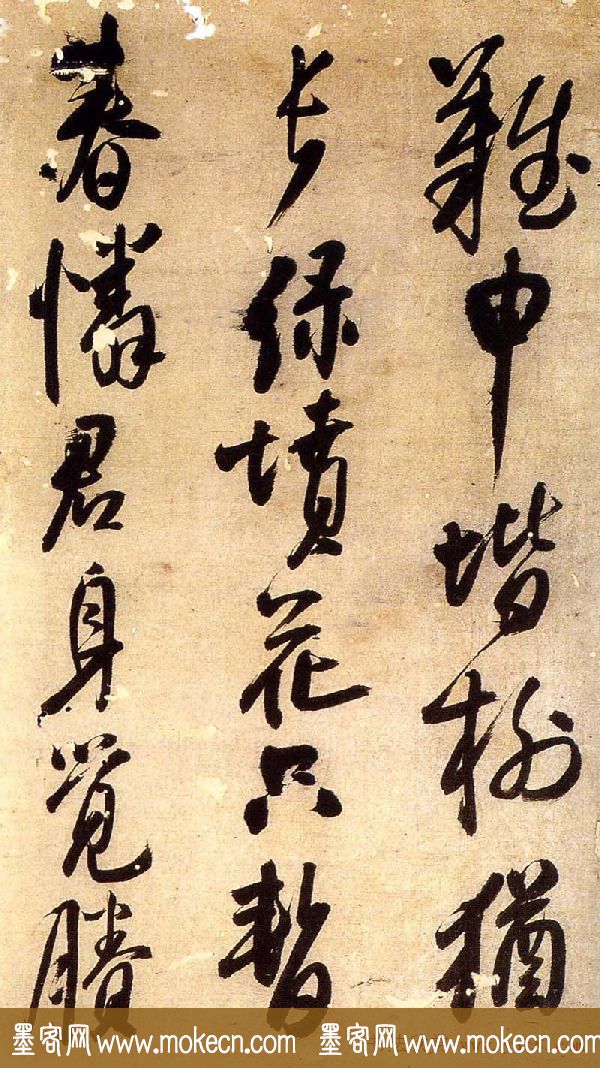 難申堦 猶
长緑墳花只暫
春憐君身覺勝
墨客网 www.mokecn.com 墨客网 www.mokecn.com